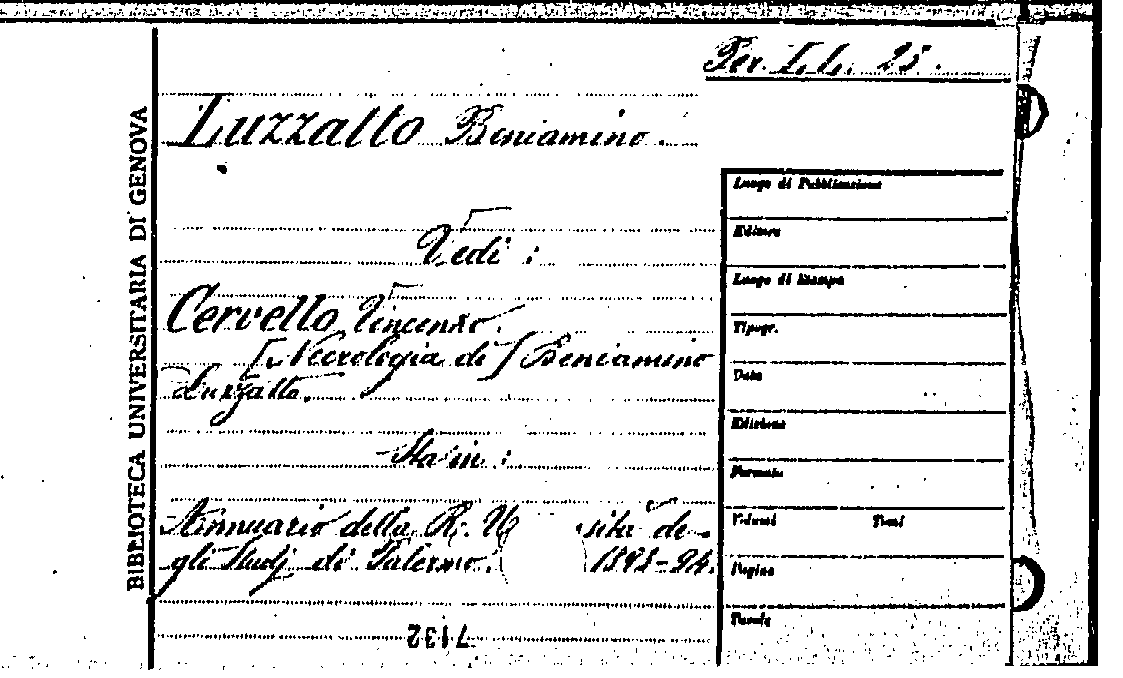 Per. I. L. 25.
Luzzatto Beniamino.
BIBLIOTECA UNIVERSITARIA DI GENOVA
Vedi :
Cervello Vincenzo.
[Necrologia di] Beniamino
Luzzatto.
Sta in :
Annuario della R. U sità de-
gli Studj di Palermo. 1893-94.
7132
Luogo di Pubblicazione
Editore
Luogo di Stampa
Tipogr.
Data
Edizione
Formato
Volumi Tomi
Pagine
Tavole